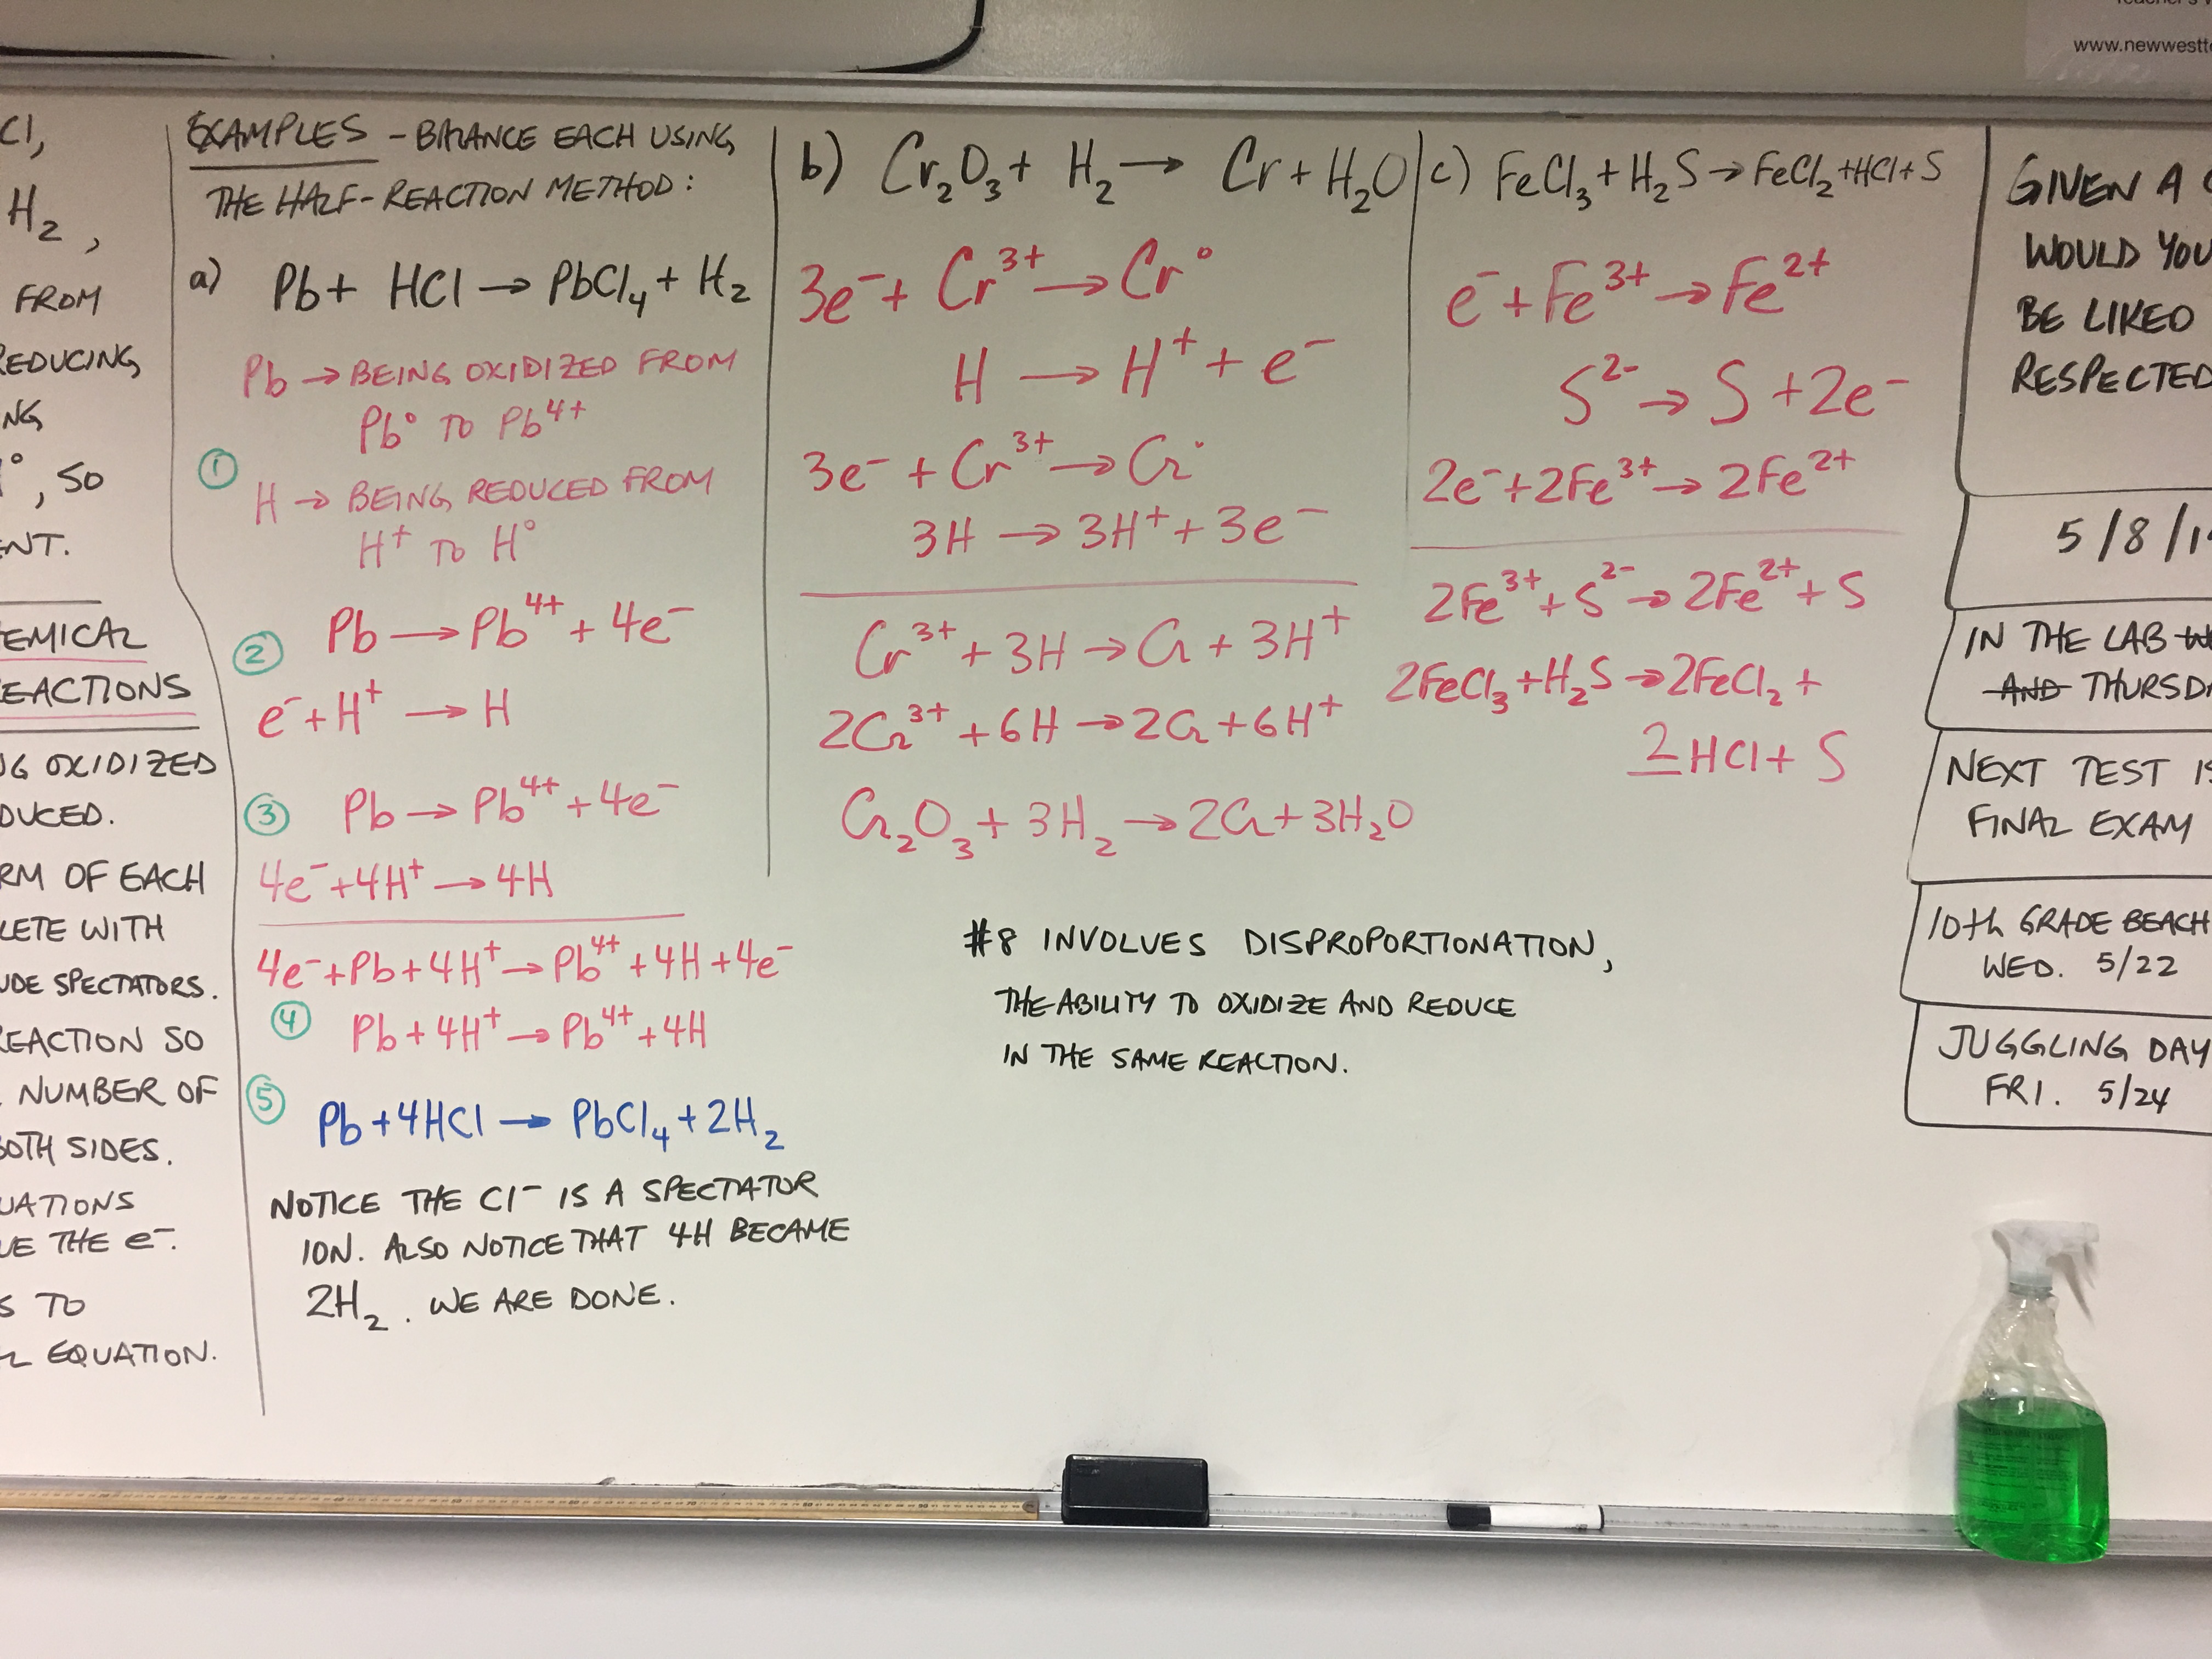 www.newwestt
Cl,
H₂,
FROM
REDUCING
NG
°, SO
ENT.
EMICAL
EACTIONS
NG OXIDIZED
DUCED.
RM OF EACH
LETE WITH
UDE SPECTATORS.
REACTION SO
NUMBER OF
BOTH SIDES.
UATIONS
VE THE e⁻.
S TO
EQUATION.
EXAMPLES - BALANCE EACH USING
THE HALF-REACTION METHOD:
a) Pb + HCl → PbCl₄ + H₂
Pb → BEING OXIDIZED FROM
Pb° TO Pb⁴⁺
①
H → BEING REDUCED FROM
H⁺ TO H°
② Pb → Pb⁴⁺ + 4e⁻
e⁻ + H⁺ → H
③ Pb → Pb⁴⁺ + 4e⁻
4e⁻ + 4H⁺ → 4H
4e⁻ + Pb + 4H⁺ → Pb⁴⁺ + 4H + 4e⁻
④ Pb + 4H⁺ → Pb⁴⁺ + 4H
⑤ Pb + 4HCl → PbCl₄ + 2H₂
NOTICE THE Cl⁻ IS A SPECTATOR
ION. ALSO NOTICE THAT 4H BECAME
2H₂. WE ARE DONE.
b) Cr₂O₃ + H₂ → Cr + H₂O
3e⁻ + Cr³⁺ → Cr°
H → H⁺ + e⁻
3e⁻ + Cr³⁺ → Cr°
3H → 3H⁺ + 3e⁻
Cr³⁺ + 3H → Cr + 3H⁺
2Cr³⁺ + 6H → 2Cr + 6H⁺
Cr₂O₃ + 3H₂ → 2Cr + 3H₂O
#8 INVOLVES DISPROPORTIONATION,
THE ABILITY TO OXIDIZE AND REDUCE
IN THE SAME REACTION.
c) FeCl₃ + H₂S → FeCl₂ + HCl + S
e⁻ + Fe³⁺ → Fe²⁺
S²⁻ → S + 2e⁻
2e⁻ + 2Fe³⁺ → 2Fe²⁺
2Fe³⁺ + S²⁻ → 2Fe²⁺ + S
2FeCl₃ + H₂S → 2FeCl₂ +
2HCl + S
GIVEN A
WOULD YOU
BE LIKED
RESPECTED
5/8/1
IN THE LAB
AND THURSDA
NEXT TEST IS
FINAL EXAM
10th GRADE BEACH
WED. 5/22
JUGGLING DAY
FRI. 5/24